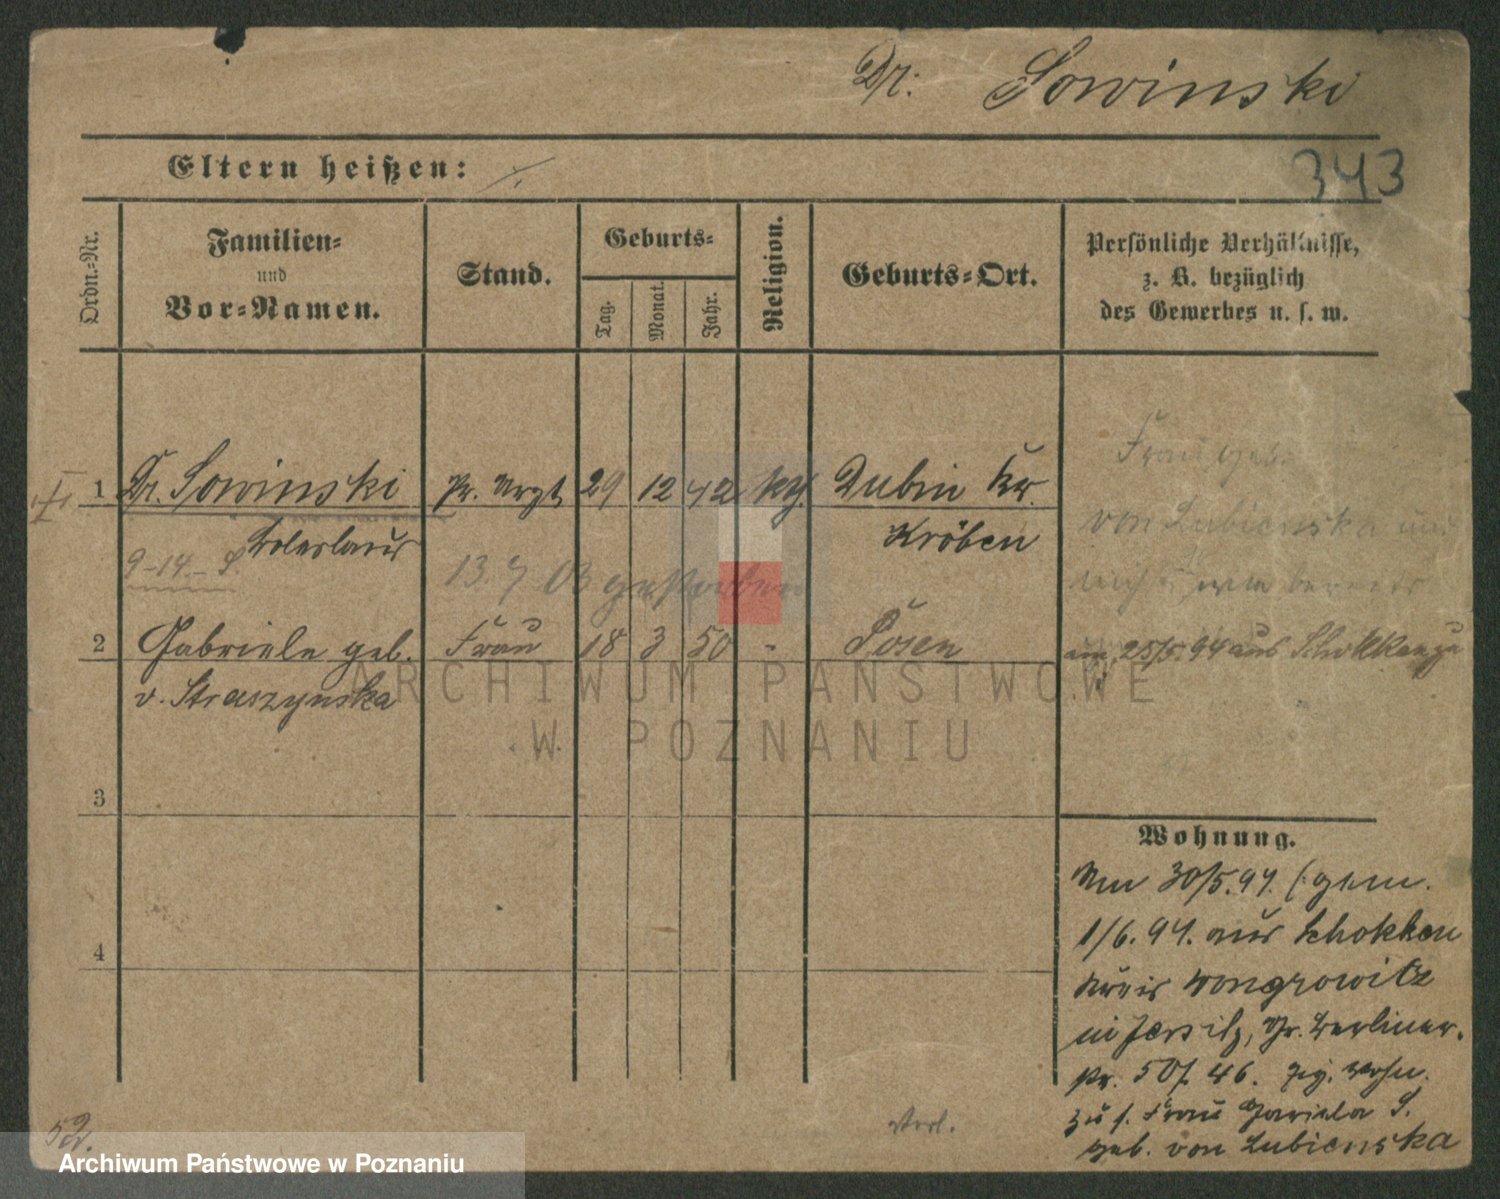 Dr. Sowinski
Eltern heißen:
343
Ordn.-Nr.
Familien-
und
Vor-Namen.
Stand.
Geburts-
Tag.
Monat.
Jahr.
Religion.
Geburts-Ort.
Persönliche Verhältnisse,
z. B. bezüglich
des Gewerbes u. s. w.
1 Dr. Sowinski pr. Arzt 29 12 42 kth. Dubin Kr.
Boleslaus Kröben
9-14.- S. 13. 7 03 gestorben
2 Gabriele geb. Frau 18 3 50 - Posen
v. Straszynska
3
4
Frau geb.
von Lubienska
25/5.94 aus Schokken zu
Wohnung.
Am 30/5.94. (gem.
1/6.94. aus Schokken
Kreis Wongrowitz
in Jersitz, Gr. Berliner-
str. 50/. 46.
zu s. Frau S.
geb. von Lubienska
52.
ARCHIWUM PAŃSTWOWE
W POZNANIU
Archiwum Państwowe w Poznaniu